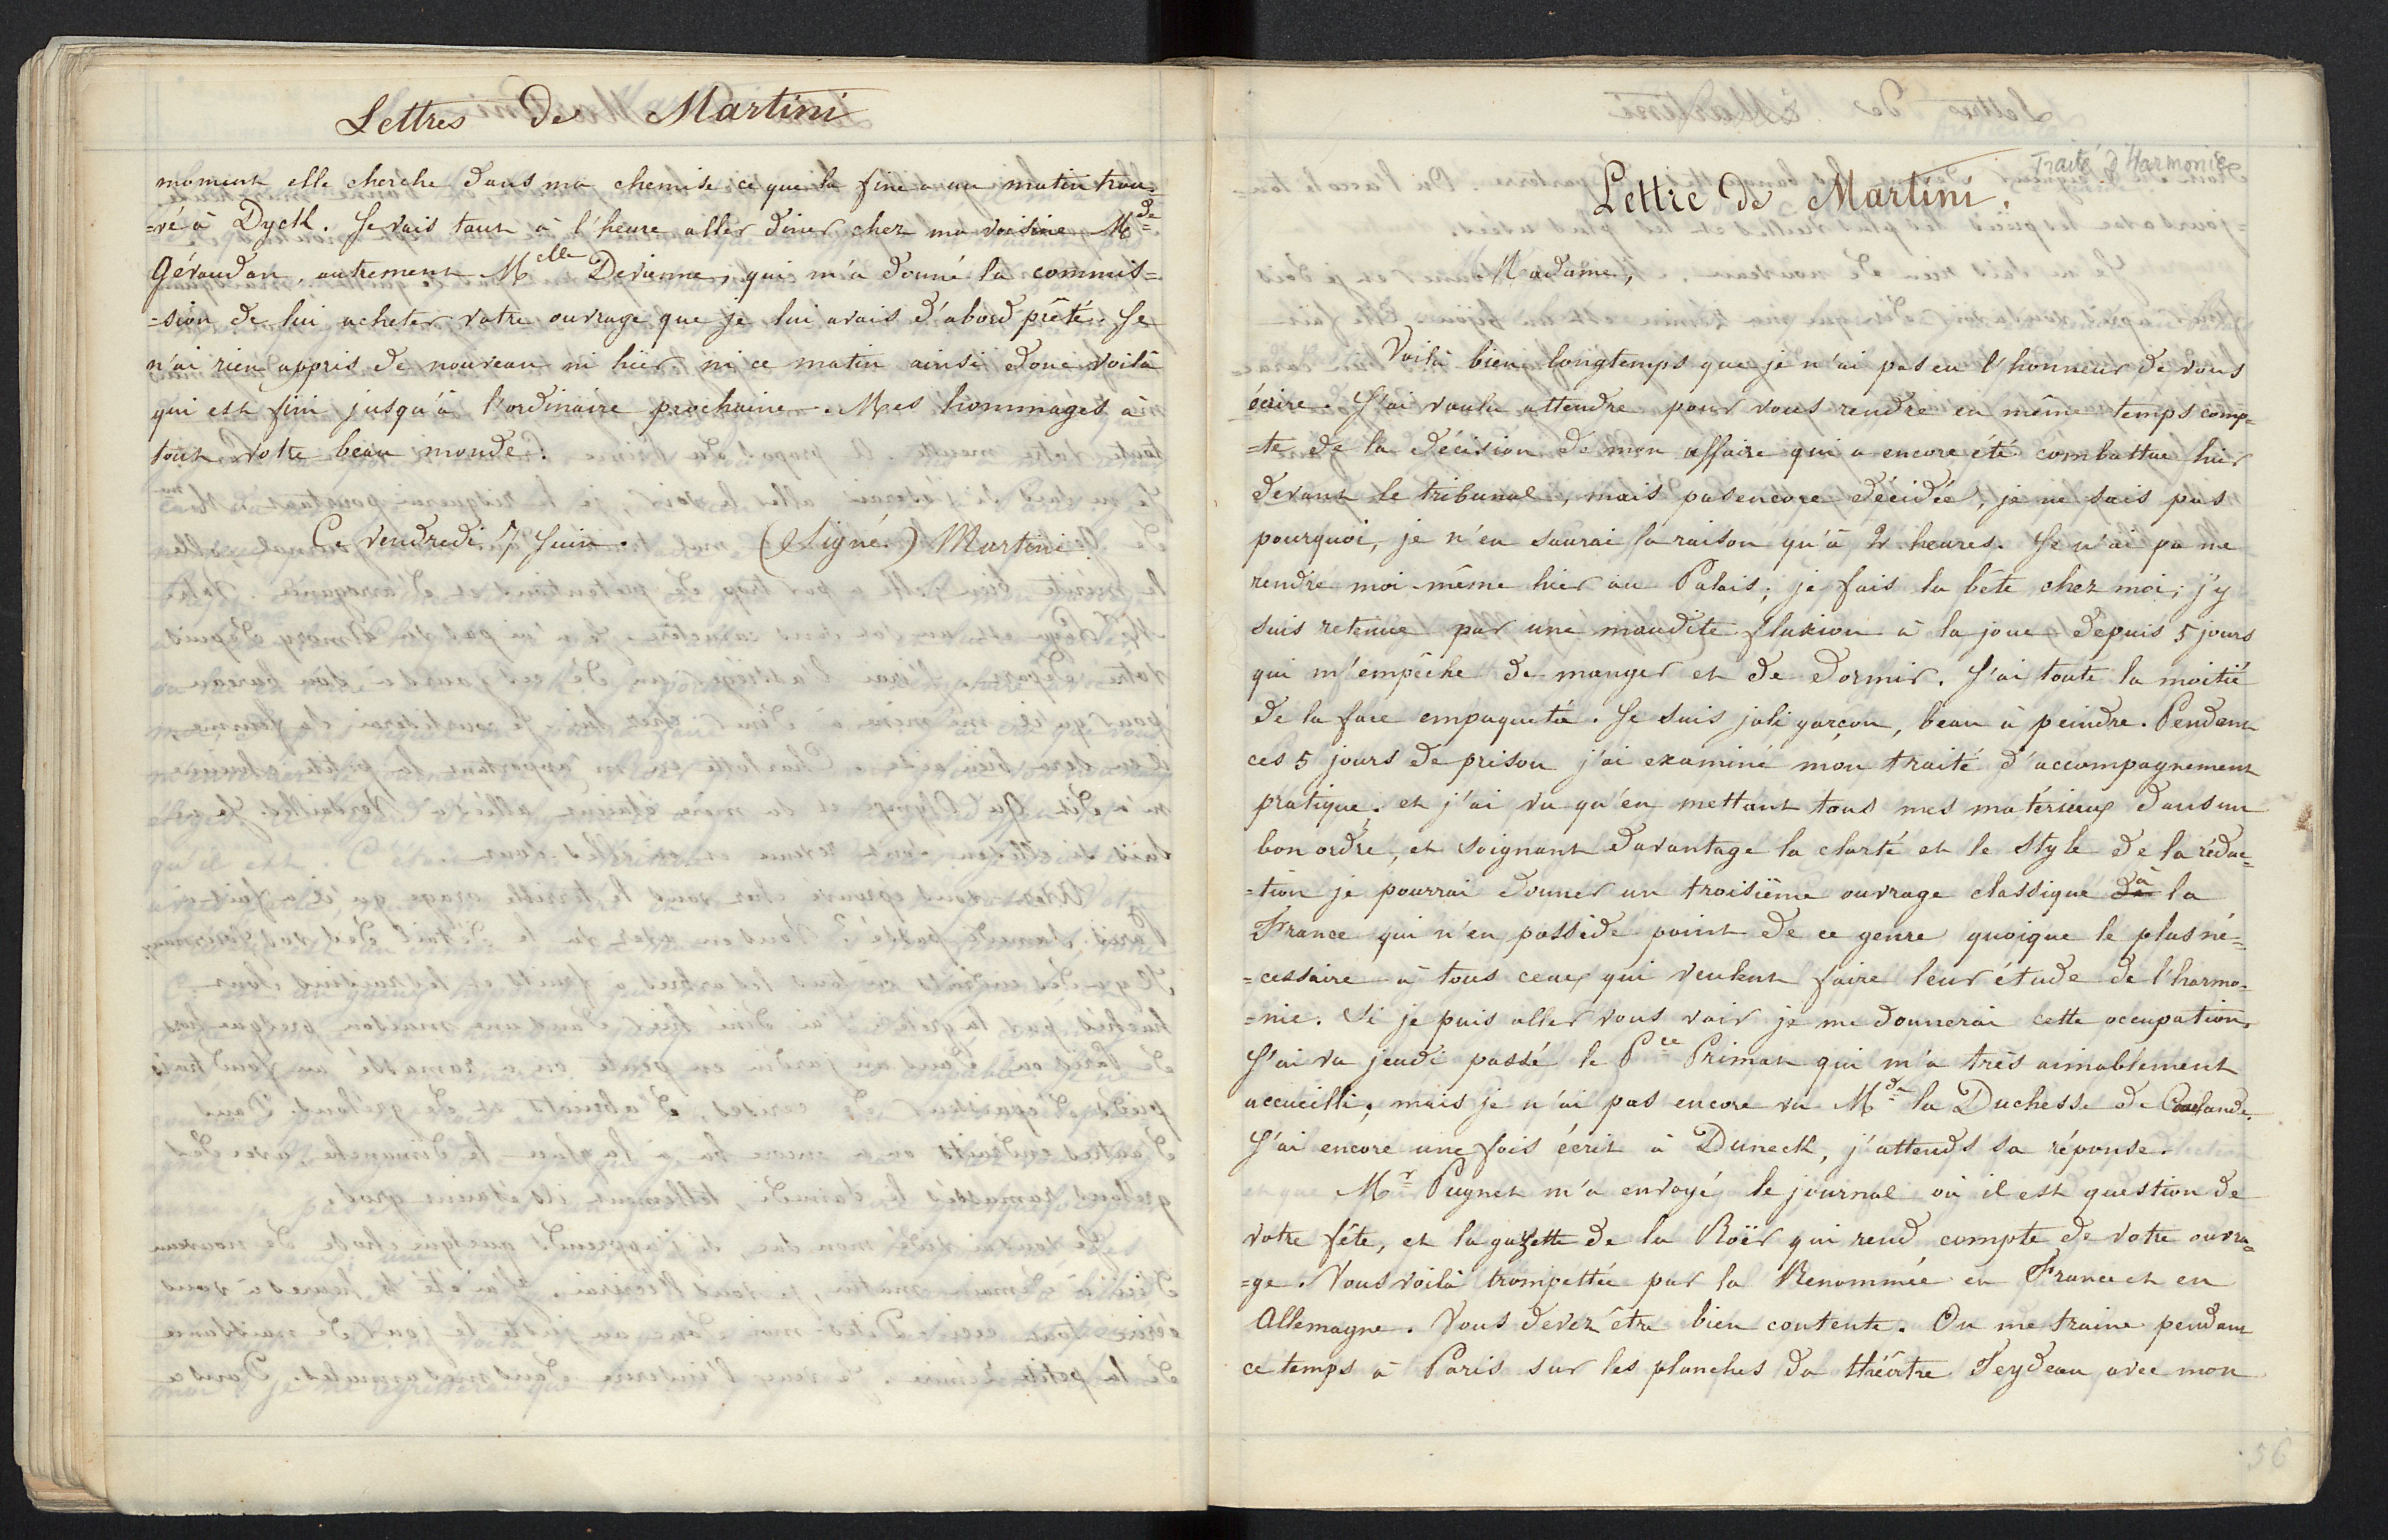 Lettres de Martini
moment elle cherche dans ma chemise ce que la fine a un matin trou-
=vé à Dyck. Je vais tout à l'heure aller diner chez ma voisine M.de
Gévaudan, autrement M.elle Devienne, qui m'a donné la commis=
=sion de lui acheter votre ouvrage que je lui avais d'abord prêté. Je
n'ai rien appris de nouveau ni hier ni ce matin ainsi donc voilà
qui est fini jusqu'à l'ordinaire prochaine. Mes hommages à
tout votre beau monde.
Ce vendredi 7 Juin. (Signé.) Martini
Traité d'Harmonie
Lettre de Martini.
Madame,
Voilà bien longtemps que je n'ai pas eu l'honneur de vous
écrire. J'ai voulu attendre pour vous rendre en même temps comp=
=te de la décision de mon affaire qui a encore été combattue hier
devant le tribunal, mais pas encore décidée, je ne sais pas
pourquoi, je n'en saurai la raison qu'à 2 heures. Je n'ai pa me
rendre moi même hier au Palais; je fais la bête chez moi; j'y
suis retenue par une maudite fluxion à la joue depuis 5 jours
qui m'empêche de manger et de dormir. J'ai toute la moitié
de la face empaquetée. Je suis joli garçon, beau à peindre. Pendant
ces 5 jours de prison j'ai examiné mon traité d'accompagnement
pratique, et j'ai vu qu'en mettant tous mes matériaux dans un
bon ordre, et soignant davantage la clarté et le style de la rédac=
=tion je pourrai donner un troisième ouvrage classique de à la
France qui n'en possède point de ce genre quoique le plus né=
=cessaire à tous ceux qui veulent faire leur étude de l'harmo=
=nie. Si je puis aller vous voir je me donnerai cette occupation.
J'ai vu jeudi passé le P.ce Primat qui m'a très aimablement
accueilli, mais je n'ai pas encore vu M.de la Duchesse de Courlande.
J'ai encore une fois écrit à Duneck, j'attends sa réponse.
M.r Pugnet m'a envoyé le journal où il est question de
votre fête, et la gazette de la Roër qui rend compte de votre ouvra=
=ge. Vous voilà trompettée par la Renommée en France et en
Allemagne. Vous devez être bien contente. On me traine pendant
ce temps à Paris sur les planches du théâtre Feydeau avec mon
56